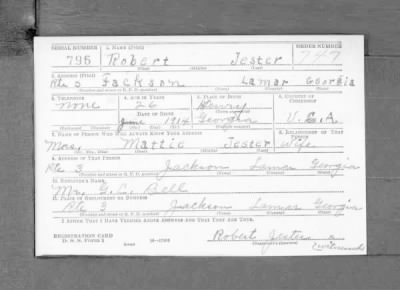 SERIAL NUMBER 1. NAME (Print) ORDER NUMBER
795 Robert Tester
(First) (Middle) (Last)
2. ADDRESS (Print)
Rte 3 Jackson Lamar Georgia
3. TELEPHONE 4. AGE IN YEARS 5. PLACE OF BIRTH 6. COUNTRY OF CITIZENSHIP
None 26 Henry
DATE OF BIRTH
June 1914 Georgia U.S.A
7. NAME OF PERSON WHO WILL ALWAYS KNOW YOUR ADDRESS 8. RELATIONSHIP OF THAT PERSON
Mrs. Mattie Jester Wife
9. ADDRESS OF THAT PERSON
Rte 3 Jackson Lamar Georgia
10. EMPLOYER'S NAME
Mr. G. C. Bell
11. PLACE OF EMPLOYMENT OR BUSINESS
Rte 3 Jackson Lamar Georgia
I AFFIRM THAT I HAVE VERIFIED ABOVE ANSWERS AND THAT THEY ARE TRUE.
REGISTRATION CARD Robert Jester
D. S. S. Form 1